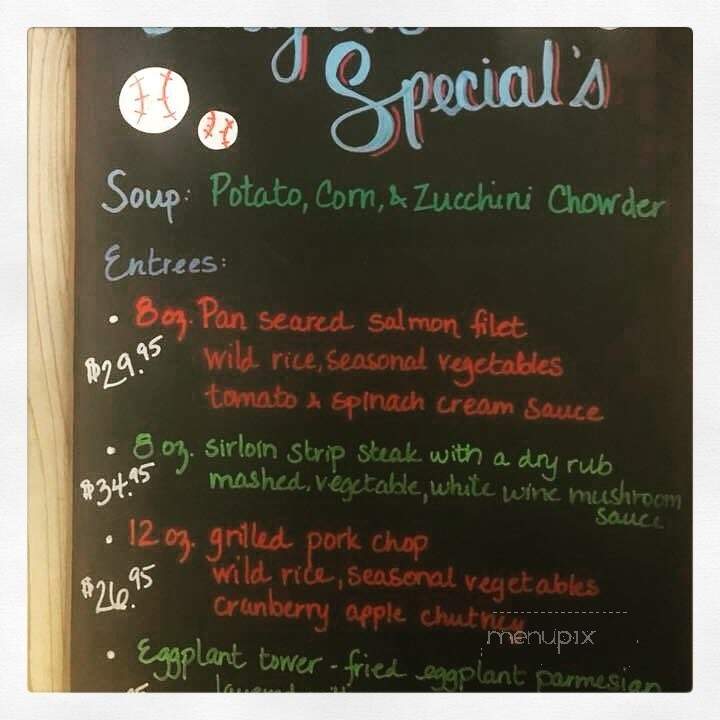 Special's
Soup: Potato, Corn, & Zucchini Chowder
Entrees:
• 8 oz. Pan seared salmon filet
$29.95 wild rice, seasonal vegetables
tomato & spinach cream sauce
• 8 oz. sirloin strip steak with a dry rub
$34.95 mashed, vegetable, white wine mushroom
sauce
• 12 oz. grilled pork chop
$26.95 wild rice, seasonal vegetables
cranberry apple chutney
menupix
• Eggplant tower - fried eggplant parmesian